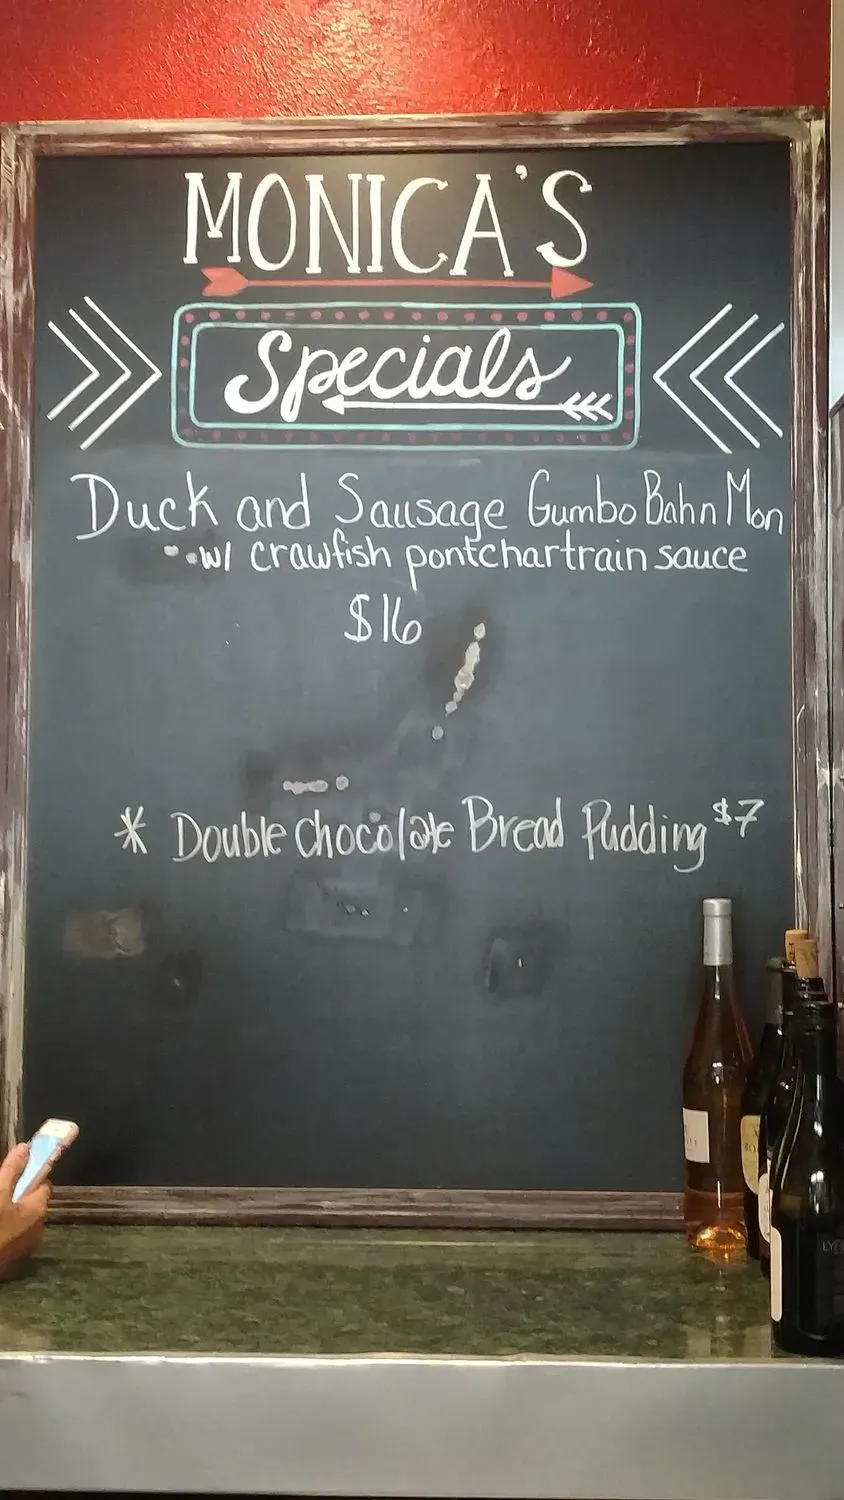 MONICA'S
Specials
Duck and Sausage Gumbo Bahn Mon
w/ crawfish pontchartrain sauce
$16
* Double chocolate Bread Pudding $7